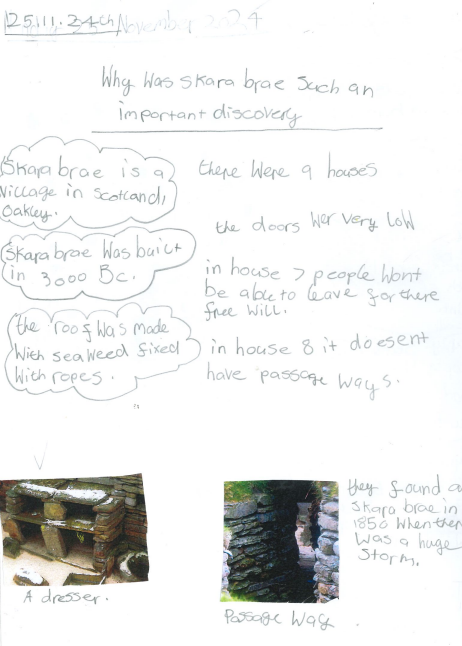 25.11.24th November 2024
Why was skara brae such an
important discovery
Skara brae is a
village in scotland,
oakley.
Skara brae was built
in 3000 Bc.
the roof was made
with seaweed fixed
with ropes.
there were 9 houses
the doors wer very low
in house 7 people wont
be able to leave for there
free will.
in house 8 it doesent
have passage ways.
A dresser.
Passage way .
they found a
skara brae in
1850 when ther
was a huge
storm.